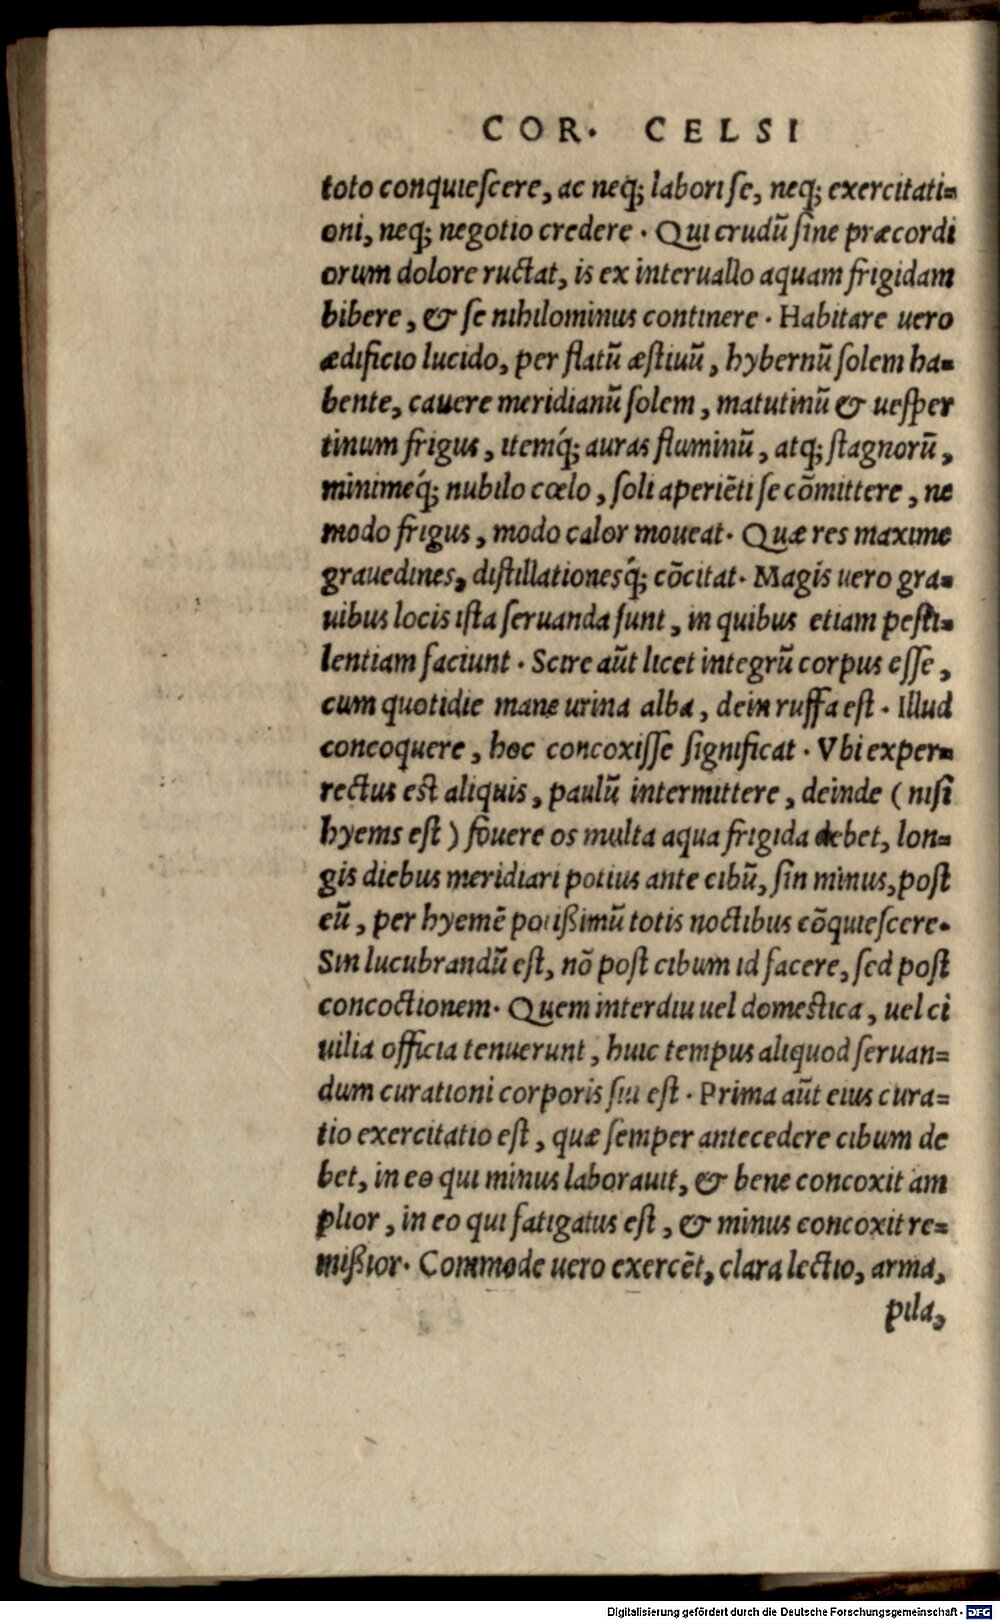 COR. CELSI
toto conquieſcere, ac neq; labori ſe, neq; exercitati=
oni, neq; negotio credere. Qui crudũ ſine præcordi
orum dolore ructat, is ex interuallo aquam frigidam
bibere, & ſe nihilominus continere. Habitare uero
ædificio lucido, per flatũ æſtiuũ, hybernũ ſolem ha=
bente, cauere meridianũ ſolem, matutinũ & ueſper
tinum frigus, itemq́; auras fluminũ, atq; ſtagnorũ,
minimeq́; nubilo cœlo, ſoli aperiẽti ſe cõmittere, ne
modo frigus, modo calor moueat. Quæ res maxime
grauedines, diſtillationesq́; cõcitat. Magis uero gra=
uibus locis iſta ſeruanda ſunt, in quibus etiam peſti=
lentiam faciunt. Scire aũt licet integrũ corpus eſſe,
cum quotidie mane urina alba, dein ruffa eſt. Illud
concoquere, hoc concoxiſſe ſignificat. Vbi exper=
rectus est aliquis, paulũ intermittere, deinde (niſi
hyems eſt) fouere os multa aqua frigida debet, lon=
gis diebus meridiari potius ante cibũ, ſin minus, poſt
eũ, per hyemẽ potißimũ totis noctibus cõquieſcere.
Sin lucubrandũ eſt, nõ poſt cibum id facere, ſed poſt
concoctionem. Quem interdiu uel domeſtica, uel ci
uilia officia tenuerunt, huic tempus aliquod ſeruan=
dum curationi corporis ſui eſt. Prima aũt eius cura=
tio exercitatio eſt, quæ ſemper antecedere cibum de
bet, in eo qui minus laborauit, & bene concoxit am
plior, in eo qui fatigatus eſt, & minus concoxit re=
mißior. Commode uero exercẽt, clara lectio, arma,
pila,
Digitalisierung gefördert durch die Deutsche Forschungsgemeinschaft - DFG